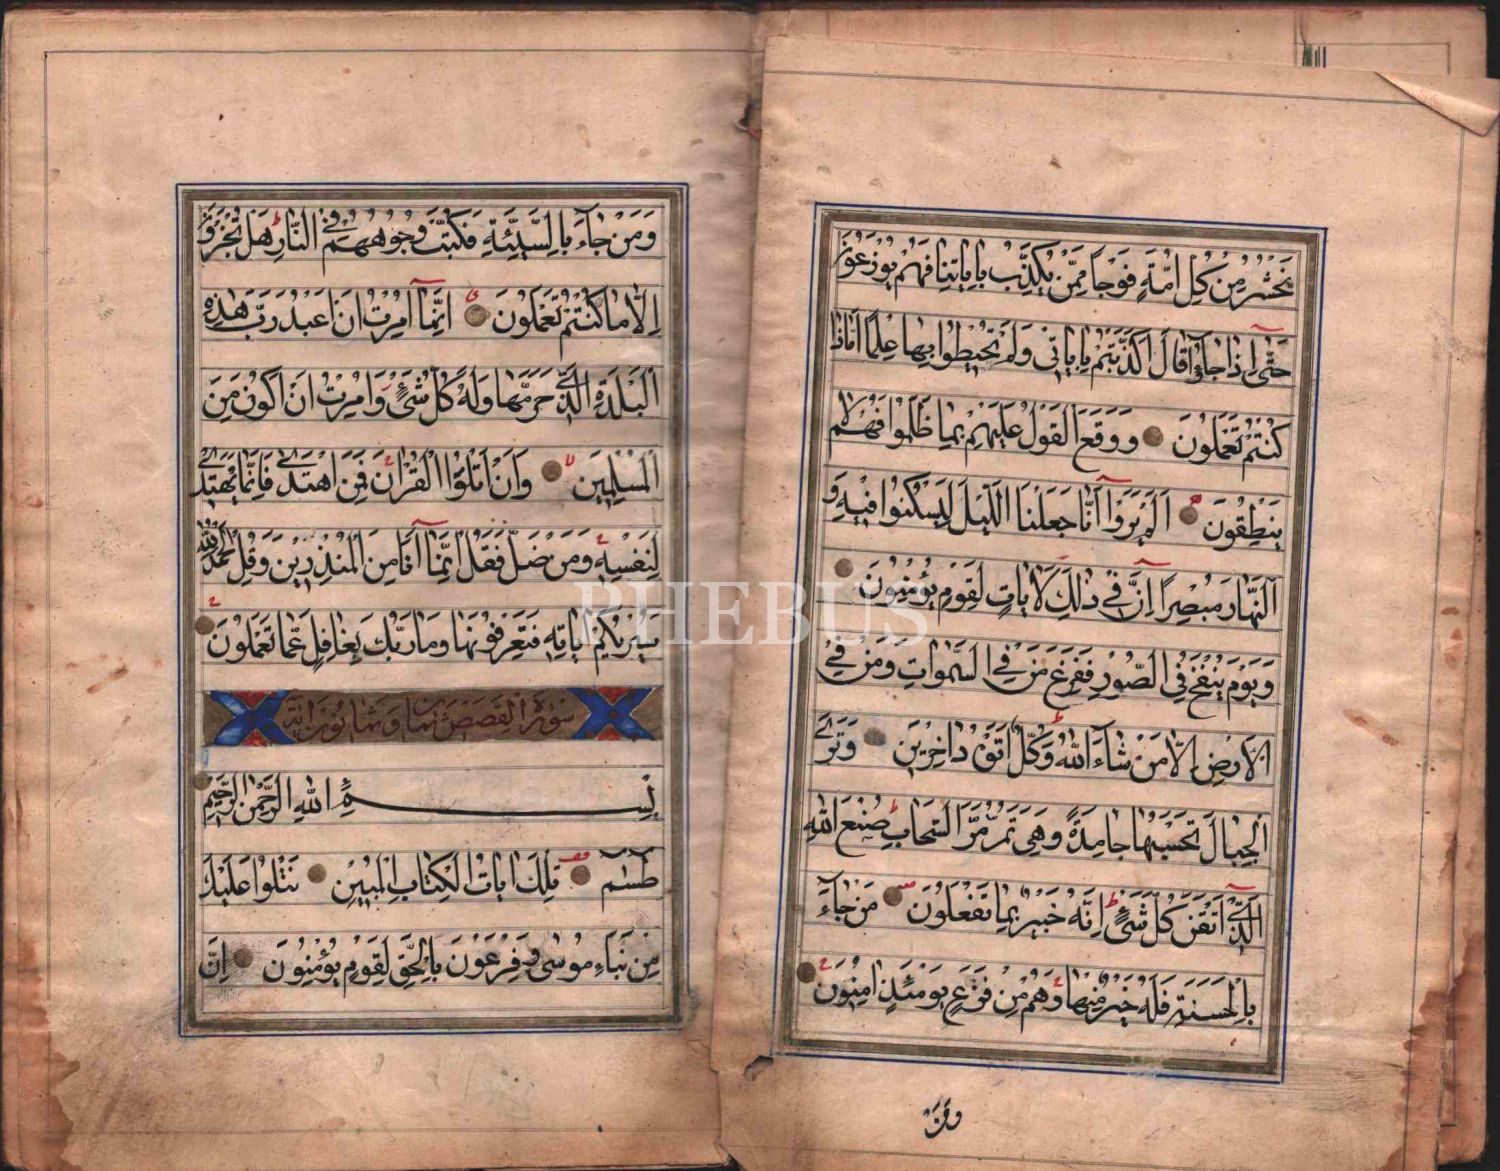 نَحْشُرُ مِنْ كُلِّ اُمَّةٍ فَوْجًا مِمَّنْ يُكَذِّبُ بِاٰيَاتِنَا فَهُمْ يُوزَعُونَ
حَتّٰى اِذَا جَاؤُا قَالَ اَكَذَّبْتُمْ بِاٰيَاتِى وَلَمْ تُحِيطُوا بِهَا عِلْمًا اَمَّاذَا
كُنْتُمْ تَعْمَلُونَ وَوَقَعَ الْقَوْلُ عَلَيْهِمْ بِمَا ظَلَمُوا فَهُمْ لَا
يَنْطِقُونَ اَلَمْ يَرَوْا اَنَّا جَعَلْنَا الَّيْلَ لِيَسْكُنُوا فِيهِ وَ
النَّهَارَ مُبْصِرًا اِنَّ فِى ذٰلِكَ لَاٰيَاتٍ لِقَوْمٍ يُؤْمِنُونَ
وَيَوْمَ يُنْفَخُ فِى الصُّورِ فَفَزِعَ مَنْ فِى السَّمٰوَاتِ وَمَنْ فِى
الْاَرْضِ اِلَّا مَنْ شَآءَ اللّٰهُ وَكُلٌّ اَتَوْهُ دَاخِرِينَ وَتَرَى
الْجِبَالَ تَحْسَبُهَا جَامِدَةً وَهِىَ تَمُرُّ مَرَّ السَّحَابِ صُنْعَ اللّٰهِ
الَّذِى اَتْقَنَ كُلَّ شَىْءٍ اِنَّهُ خَبِيرٌ بِمَا تَفْعَلُونَ مَنْ جَآءَ
بِالْحَسَنَةِ فَلَهُ خَيْرٌ مِنْهَا وَهُمْ مِنْ فَزَعٍ يَوْمَئِذٍ اٰمِنُونَ
ومن
وَمَنْ جَآءَ بِالسَّيِّئَةِ فَكُبَّتْ وُجُوهُهُمْ فِى النَّارِ هَلْ تُجْزَوْنَ
اِلَّا مَا كُنْتُمْ تَعْمَلُونَ اِنَّمَآ اُمِرْتُ اَنْ اَعْبُدَ رَبَّ هٰذِهِ
الْبَلْدَةِ الَّذِى حَرَّمَهَا وَلَهُ كُلُّ شَىْءٍ وَاُمِرْتُ اَنْ اَكُونَ مِنَ
الْمُسْلِمِينَ وَاَنْ اَتْلُوَا الْقُرْاٰنَ فَمَنِ اهْتَدٰى فَاِنَّمَا يَهْتَدِى
لِنَفْسِهِ وَمَنْ ضَلَّ فَقُلْ اِنَّمَآ اَنَا مِنَ الْمُنْذِرِينَ وَقُلِ الْحَمْدُ لِلّٰهِ
سَيُرِيكُمْ اٰيَاتِهِ فَتَعْرِفُونَهَا وَمَا رَبُّكَ بِغَافِلٍ عَمَّا تَعْمَلُونَ
سورة القصص ثمان وثمانون اية
بِسْمِ اللّٰهِ الرَّحْمٰنِ الرَّحِيمِ
طٰسٓمٓ تِلْكَ اٰيَاتُ الْكِتَابِ الْمُبِينِ نَتْلُوا عَلَيْكَ
مِنْ نَبَاِ مُوسٰى وَفِرْعَوْنَ بِالْحَقِّ لِقَوْمٍ يُؤْمِنُونَ اِنَّ
PHEBUS